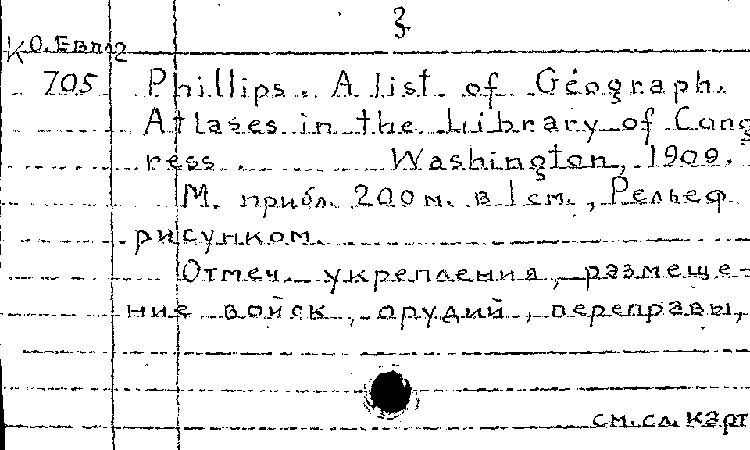 3
К О. Евп 2
705 Phillips. A list of Geograph.
Atlases in the Library of Cong
ress. Washington, 1909.
М. прибл. 200 м. в 1 см., Рельеф
рисунком.
Отмеч. укрепления, размеще-
ние войск, орудий, переправы,
см. сл. карт